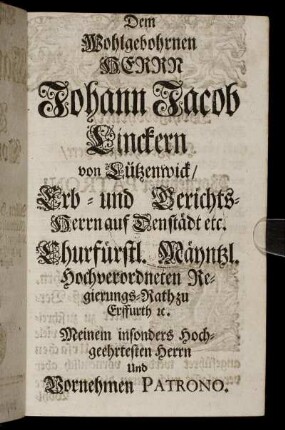 Dem
Wohlgebohrnen
HERRN
Johann Jacob
Linckern
von Lützenwick/
Erb- und Gerichts-
Herrn auf Denstädt etc.
Churfürstl. Mäyntzl.
Hochverordneten Re-
gierungs-Rath zu
Erffurth ꝛc.
Meinem insonders Hoch-
geehrtesten Herrn
Und
Vornehmen PATRONO.